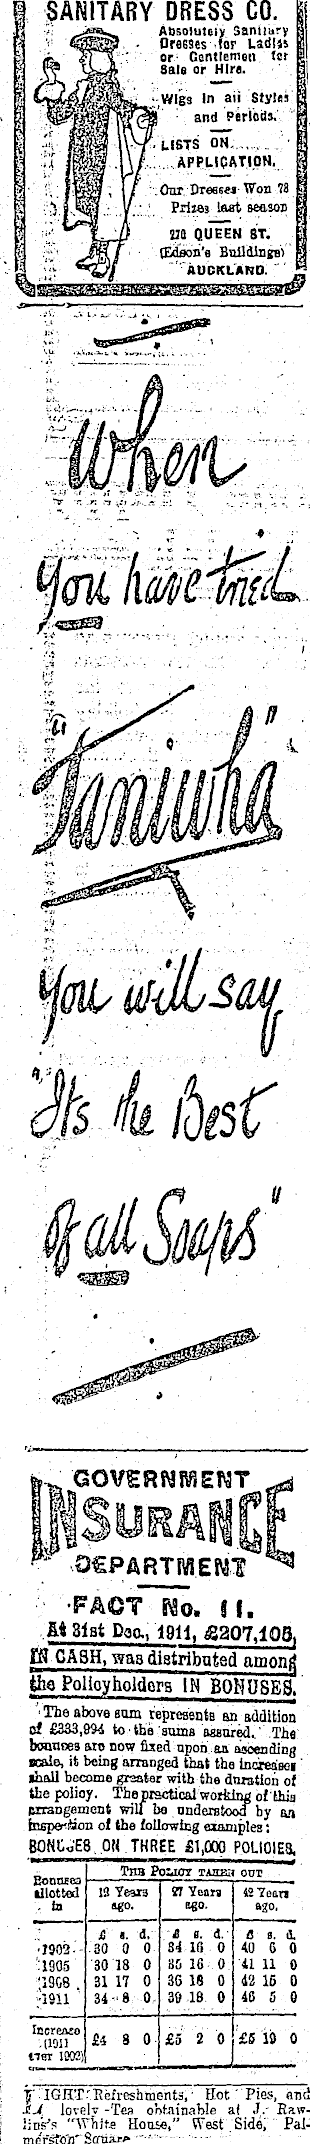 SANITARY DRESS CO.
Absolutely Sanitary
Dresses for Ladies
or Gentlemen for
Sale or Hire.
Wigs in all Styles
and Periods.
LISTS ON
APPLICATION.
Our Dresses Won 78
Prizes last season
270 QUEEN ST.
(Edson's Buildings)
AUCKLAND.
When
you have tried
"Taniwha"
you will say
"Its the Best
of all Soaps"
GOVERNMENT
INSURANCE
DEPARTMENT
FACT No. 11.
At 31st Dec., 1911, £207,105,
IN CASH, was distributed among
the Policyholders IN BONUSES.
The above sum represents an addition
of £333,994 to the sums assured. The
bonuses are now fixed upon an ascending
scale, it being arranged that the increases
shall become greater with the duration of
the policy. The practical working of this
arrangement will be understood by an
inspection of the following examples:
BONUSES ON THREE £1,000 POLICIES.
Bonuses allotted in | THE POLICY TAKEN OUT
12 Years ago. | 27 Years ago. | 42 Years ago.
£ s. d. | £ s. d. | £ s. d.
1902 | 30 0 0 | 34 16 0 | 40 6 0
1905 | 30 18 0 | 35 16 0 | 41 11 0
1908 | 31 17 0 | 36 18 0 | 42 15 0
1911 | 34 8 0 | 39 18 0 | 46 5 0
Increase (1911 over 1902) | £4 8 0 | £5 2 0 | £5 19 0
LIGHT Refreshments, Hot Pies, and
lovely Tea obtainable at J. Raw-
lins's "White House," West Side, Pal-
merston Square